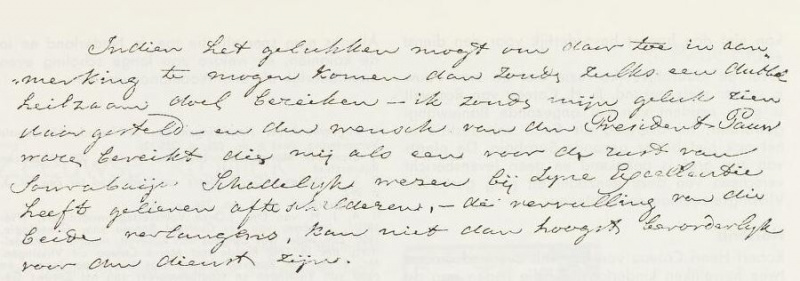 Indien het gelukken mogt om daar toe in aan„
„merking te mogen komen dan zoude zulks een dubbel
heilzaam doel bereiken – ik zoude mijn geluk zien
daar gesteld – en den wensch van den President Pauw
ware bereikt die mij als een voor de rust van
Sourabaija Schadelijk wezen bij Zyne Excellentie
heeft gelieven afteschilderen, – de vervulling van die
beide verlangens, kan niet dan hoogst bevorderlijk
voor den dienst zijn.